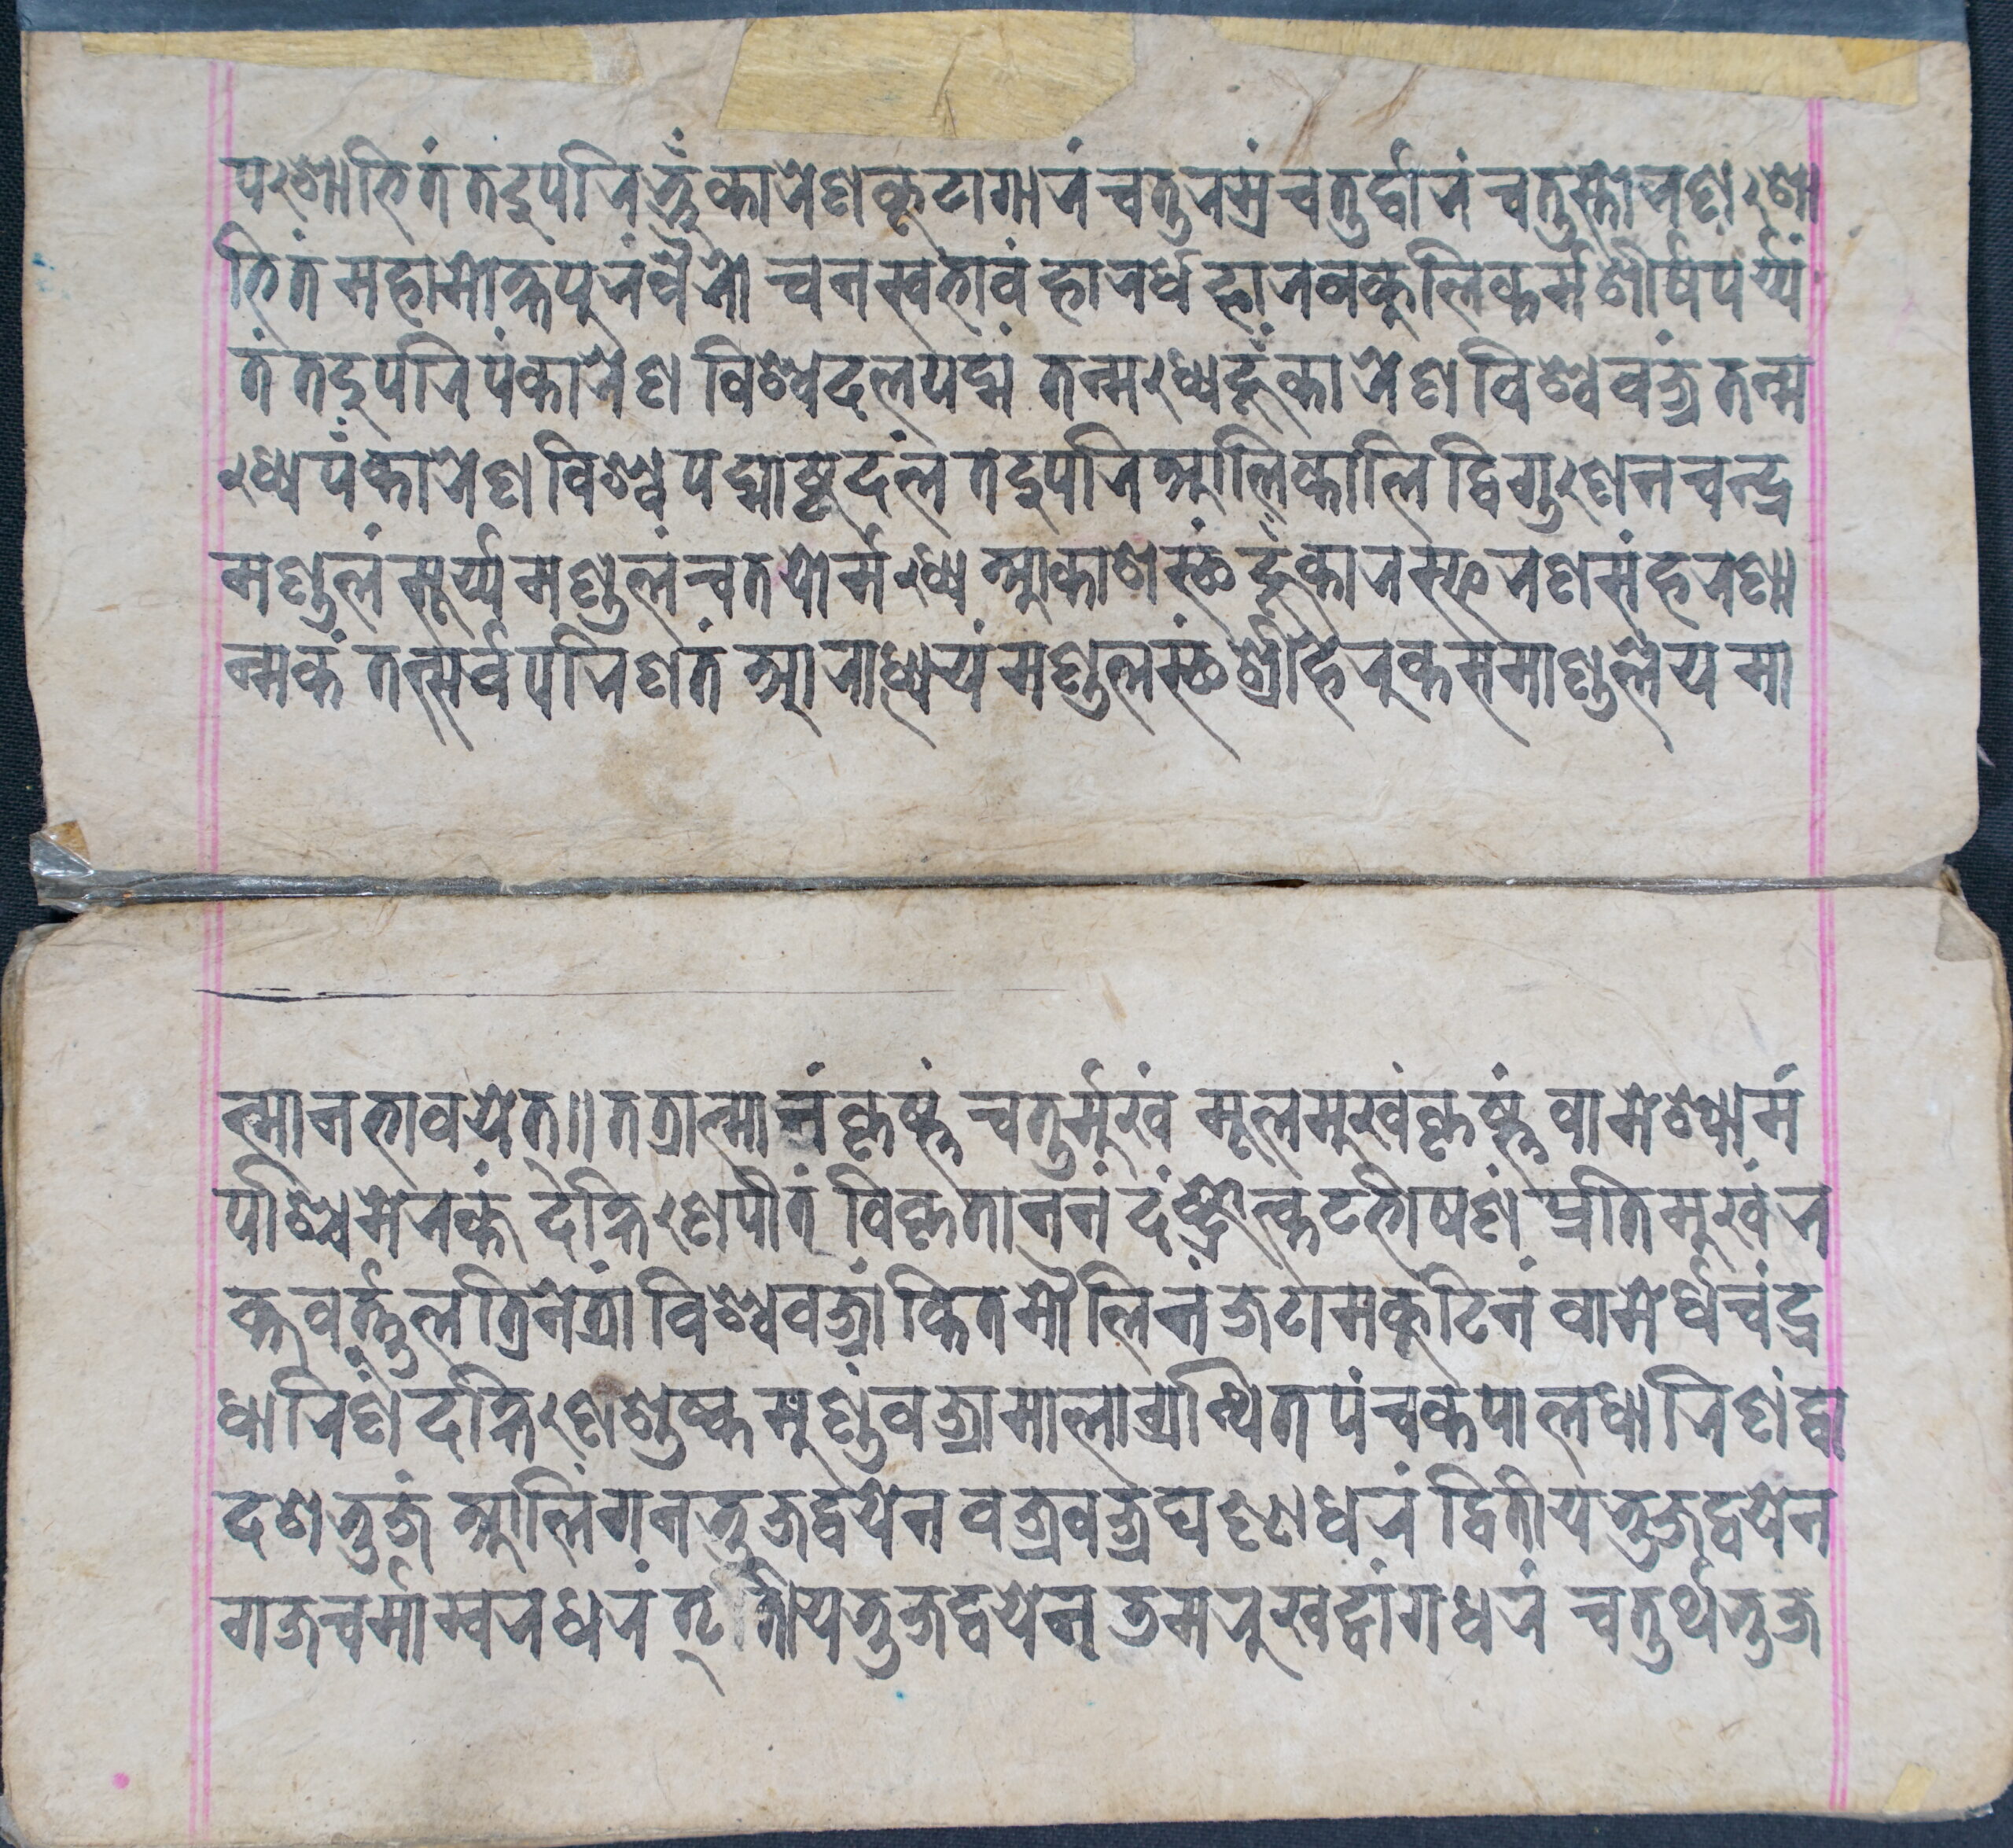 पशोभितं तदुपरि भ्रुँकारेण कूटागारं चतुरस्रं चतुर्द्वारं चतुस्तोरण शो
भितं महामोक्षपुरं वैरोचनस्वभावं हारर्धहारवकुलिकर्मशीर्षपर्य्यं
तं तदुपरि पंकारेण विश्वदलपद्मं तन्मध्ये हूँकारेण विश्ववज्रं तन्म
ध्ये पँकारेण विश्वपद्माष्टदलं तदुपरि आलिकालि द्विगुणेन चन्द्र
मण्डुलं सूर्य्यमण्डुलं च तयोर्मध्ये आकाशस्थं हूँकार स्फरणसंहरणा
त्मकं तत्सर्वपरिणतं आराध्ययं मण्डुलस्थं श्रीहेरुकसमाण्डुलेयमा
त्मान भावयेत ॥ तत्रात्मानं कृष्णं चतुर्मुखं मूलमुखं कृष्णं वामे श्यामं
पश्चिमे रक्तं देक्षिणे पीतं विकृताननं दंष्ट्रोत्कटभीषणं प्रतिमुखं र
क्तवर्त्तुलत्रिनेत्रां विश्ववज्रांकितमौलिनं जटामकूटिनं वामेर्धचंद्र
धारिणँ दक्षिणे शुष्कमुण्डुं वज्रामालाग्रन्थित पंचकपालधारिणं द्वा
दशभुजं आलिंगनभुजद्वयेन वज्रवज्रघण्टाधरं द्वितीयभुजद्वयेन
गजचर्माम्बरधरं तृतीयभुजद्वयेन डमरुखट्वांगधरं चतुर्थभुज